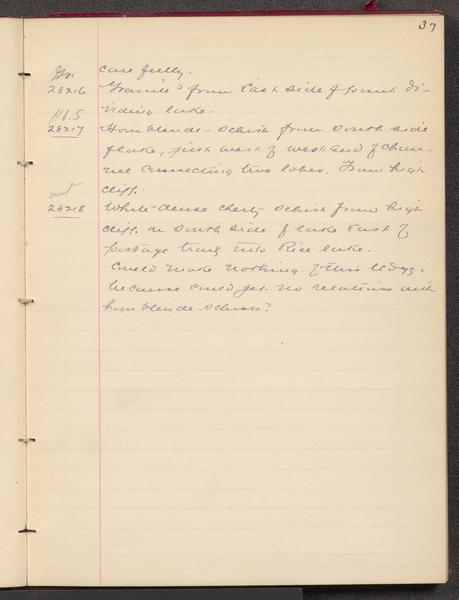 37
Gr. carefully.
28216 "Granite" from East side of point di-
viding lake.
Hb.S
28217 Hornblende-schist from South side
of lake, just west of west end of chan-
nel connecting two lobes. From high
cliff.
28218 White dense cherty schist from high
cliff on South side of lake East of
portage trail into Rice lake.
Could make nothing of this ledge,
because could get no relations with
hornblende-schists?